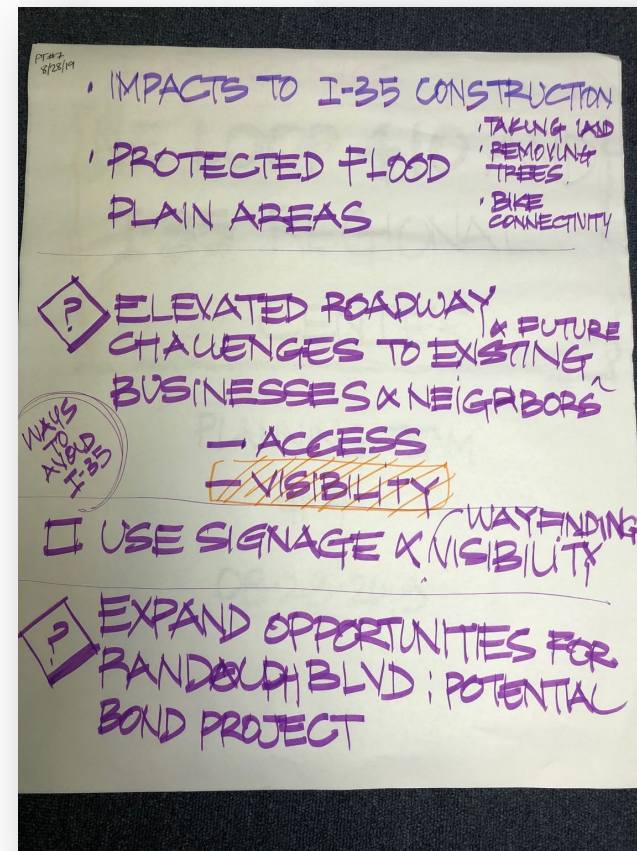 PT#7
8/28/19
• IMPACTS TO I-35 CONSTRUCTION
• TAKING LAND
• REMOVING TREES
• BIKE CONNECTIVITY
• PROTECTED FLOOD
PLAIN AREAS
? ELEVATED ROADWAY
CHALLENGES TO EXISTING
& FUTURE
BUSINESSES & NEIGHBORS
— ACCESS
— VISIBILITY
WAYS
TO
AVOID
I-35
□ USE SIGNAGE & VISIBILITY
WAYFINDING
? EXPAND OPPORTUNITIES FOR
RANDOLPH BLVD : POTENTIAL
BOND PROJECT